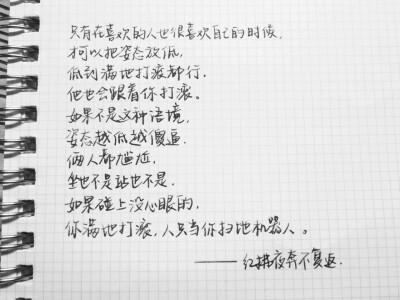 只有在喜欢的人也很喜欢自己的时候，
才可以把姿态放低，
低到满地打滚都行.
他也会跟着你打滚。
如果不是这种语境，
姿态越低越傻逼.
俩人都尴尬，
坐也不是站也不是.
如果碰上没心眼的，
你满地打滚，人只当你扫地机器人。
——红拂夜奔不复返.